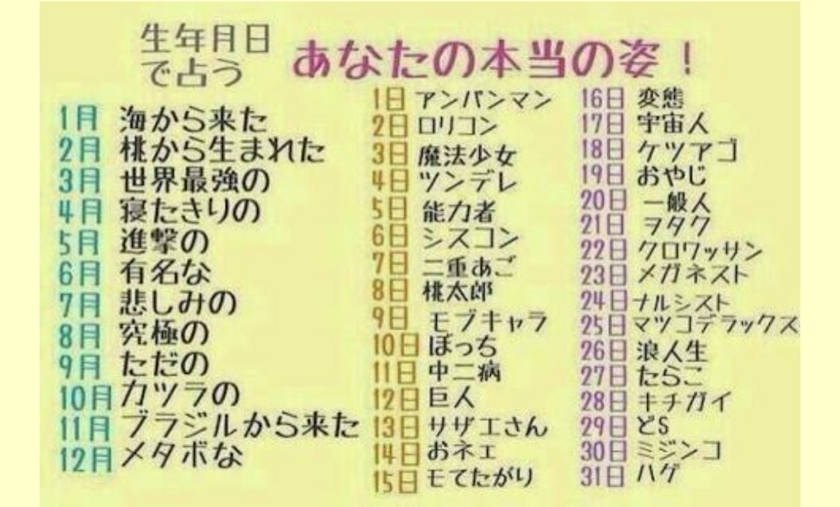 生年月日
で占う
あなたの本当の姿！
1月 海から来た
2月 桃から生まれた
3月 世界最強の
4月 寝たきりの
5月 進撃の
6月 有名な
7月 悲しみの
8月 究極の
9月 ただの
10月 カツラの
11月 ブラジルから来た
12月 メタボな
1日 アンパンマン
2日 ロリコン
3日 魔法少女
4日 ツンデレ
5日 能力者
6日 シスコン
7日 二重あご
8日 桃太郎
9日 モブキャラ
10日 ぼっち
11日 中二病
12日 巨人
13日 サザエさん
14日 おネエ
15日 モてたがり
16日 変態
17日 宇宙人
18日 ケツアゴ
19日 おやじ
20日 一般人
21日 ヲタク
22日 クロワッサン
23日 メガネスト
24日 ナルシスト
25日 マツコデラックス
26日 浪人生
27日 たらこ
28日 キチガイ
29日 どS
30日 ミジンコ
31日 ハゲ